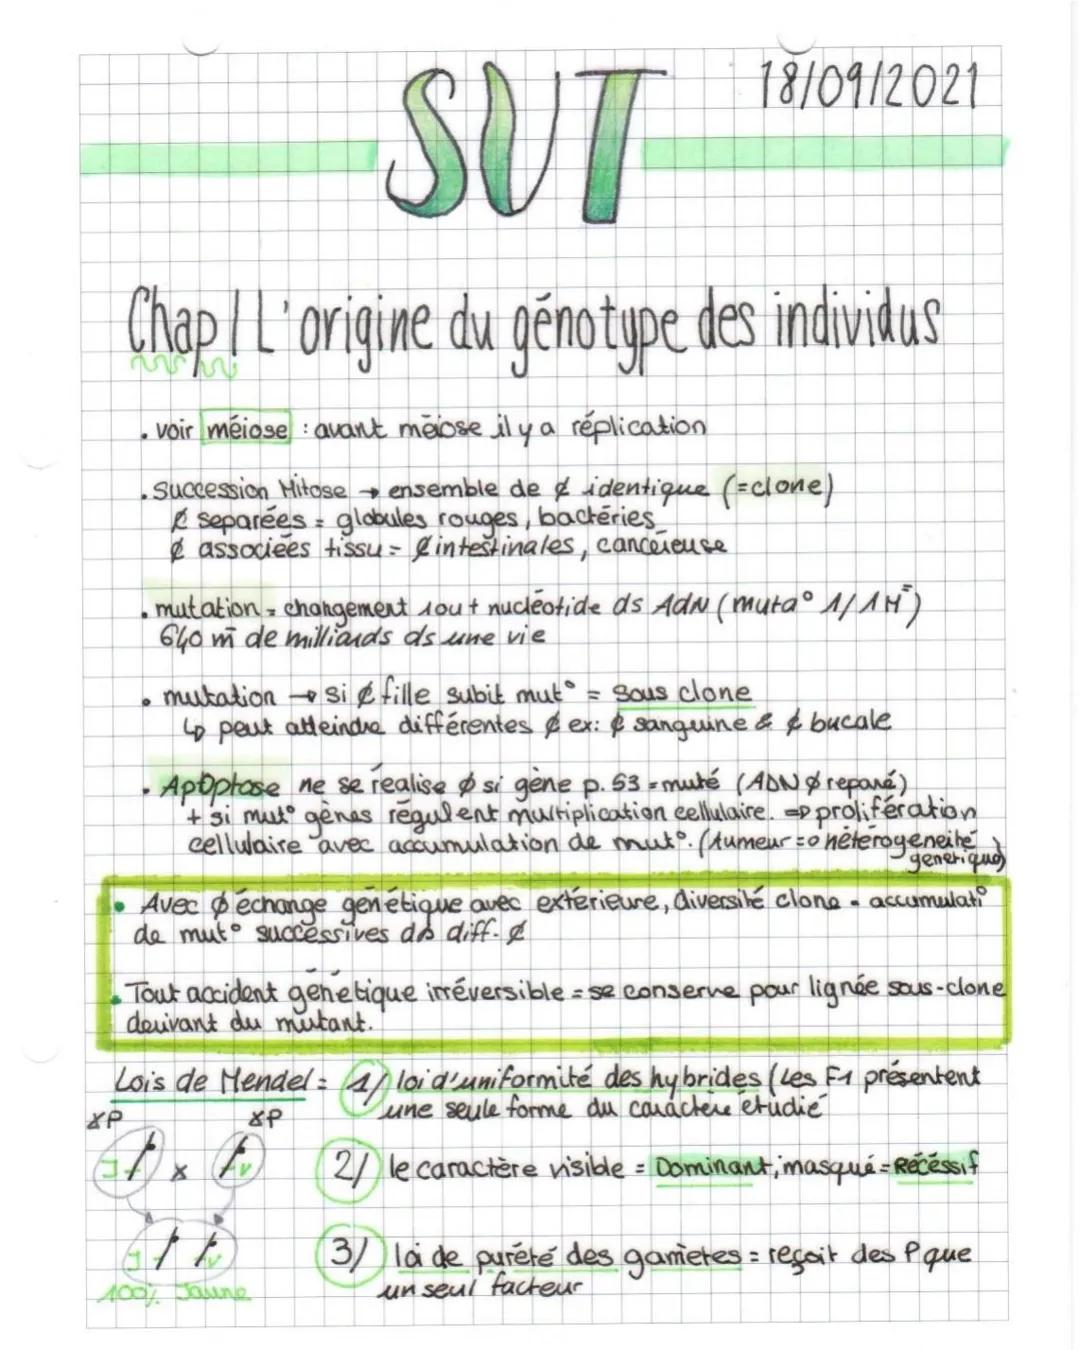 SVT
18/09/2021
Chap 1 L'origine du génotype des individus
. voir méiose : avant méiose il y a réplication
. Succession Mitose → ensemble de ₵ identique (=clone)
₵ separées = globules rouges, bactéries
₵ associées tissu = ₵ intestinales, cancéreuse
. mutation = changement 1 ou + nucléotide ds ADN (muta° 1/1M)
640 m de milliards ds une vie
• mutation → si ₵ fille subit mut° = sous clone
↳ peut atteindre différentes ₵ ex: ₵ sanguine & ₵ bucale
. Apoptose ne se réalise ∅ si gène p.53 = muté (ADN ∅ réparé)
+ si mut° gènes régulent multiplication cellulaire. ⇒ prolifération
cellulaire avec accumulation de mut°. (tumeur = hétérogeneité
genetique)
• Avec ∅ échange génétique avec extérieure, diversité clone = accumulati°
de mut° successives ds diff. ₵
. Tout accident génétique irréversible = se conserve pour lignée sous-clone
derivant du mutant.
Lois de Mendel = 1/ loi d'uniformité des hybrides (Les F1 présentent
une seule forme du caractère étudié
♂P ♂P
J x v
2/ le caractère visible = Dominant, masqué = Récéssif
J v
100% Jaune
3/ loi de pureté des gametes = reçoit des P que
un seul facteur